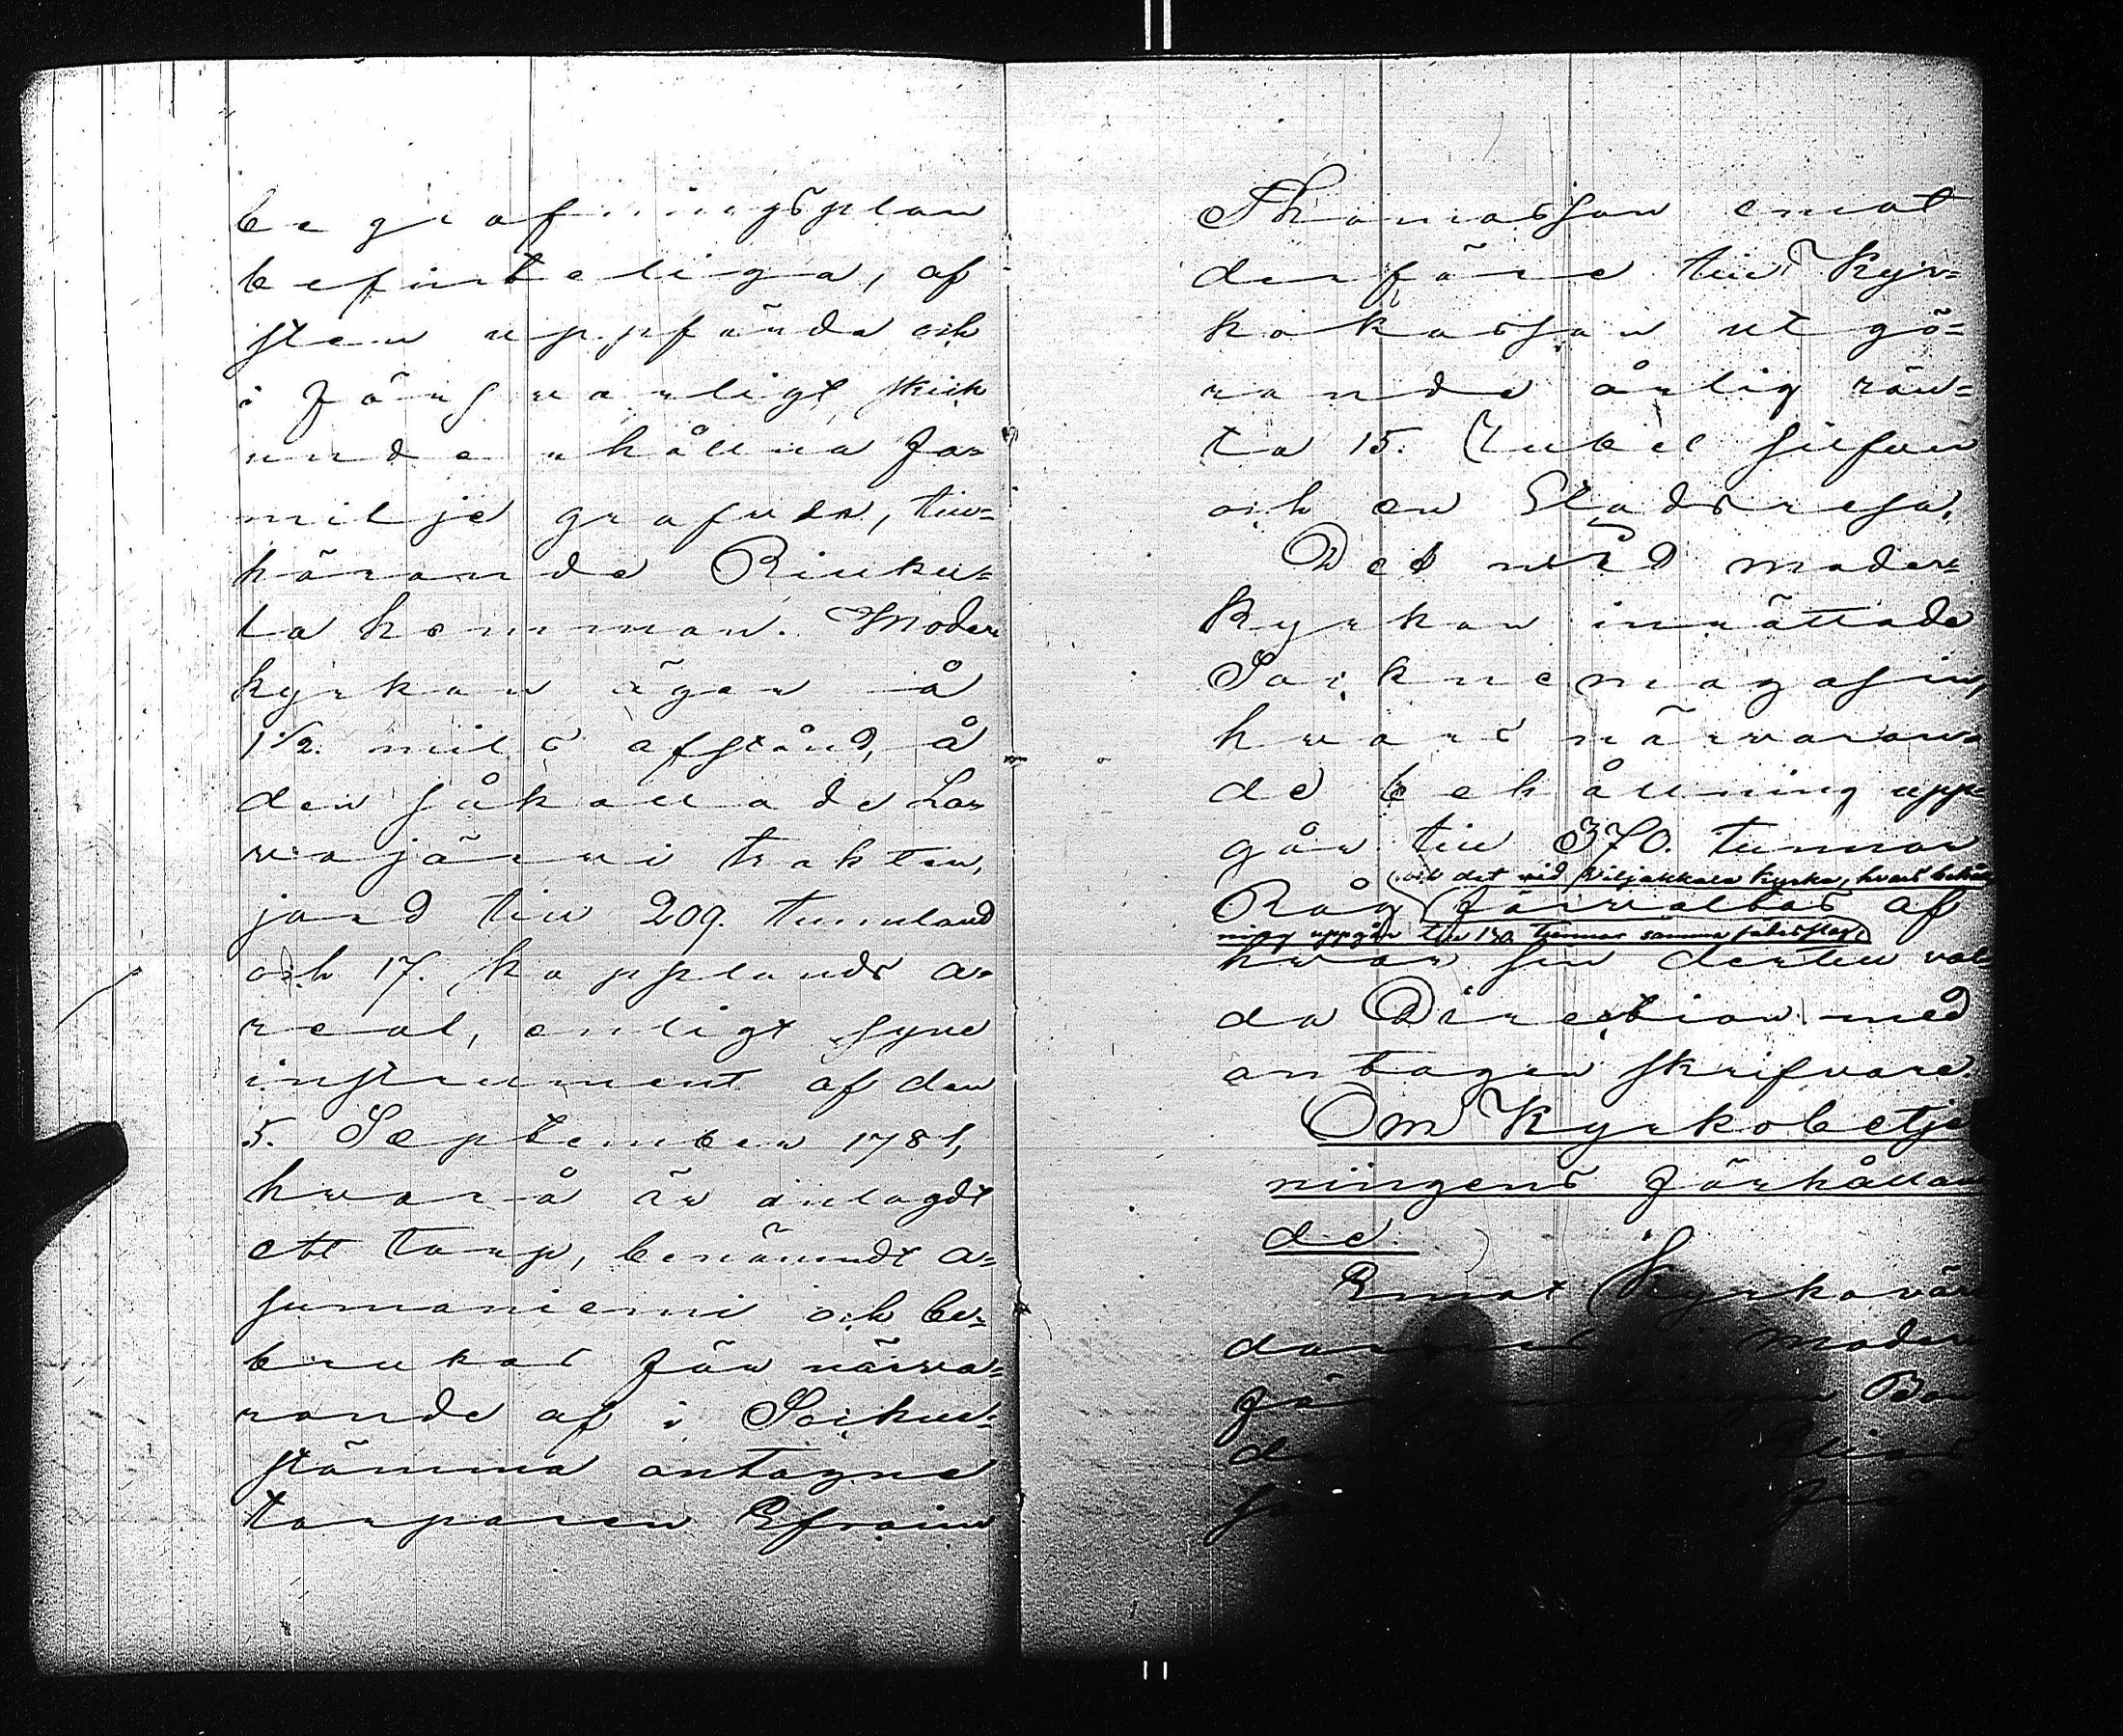 begrafningsplan
befinteliga, af
sten uppförda och
i försvarligt skick
underhållna fa=
milje grafvar, till=
hörande Rinku=
la hemman. Moder
kyrkan äger å
1 1/2 mils afstånd, å
den såkallade La=
vajärvi trakten,
jord till 209. tunnland
och 17. kapplands a=
real, enligt syne
instrument af den
5. September 1781,
hvarå är anlagdt
ett torp, benämndt a=
sumaniemi och be=
brukas för närva=
rande af i Sockne=
stämma antagne
torparen Efraim
Thomasson emot
derföre till Kyr=
kokassan utgö=
rande årlig rän=
ta 15. Rubel silfver
och en Stadsresa.
Det vid moder=
kyrkan inrättade
Socknemagasin,
hvars närvaran=
de behållning upp
går till 370. tunnor
och det vid Viljakkala kyrka, hvars behåll
Råg förvaltas af
ning uppgår till 130 tunnor samma sädesslag
hvar sin dertill val=
da Direction med
antagen skrifvare.
Om Kyrkobetje
ningens förhållan
de.
Emot Kyrkovär
moder